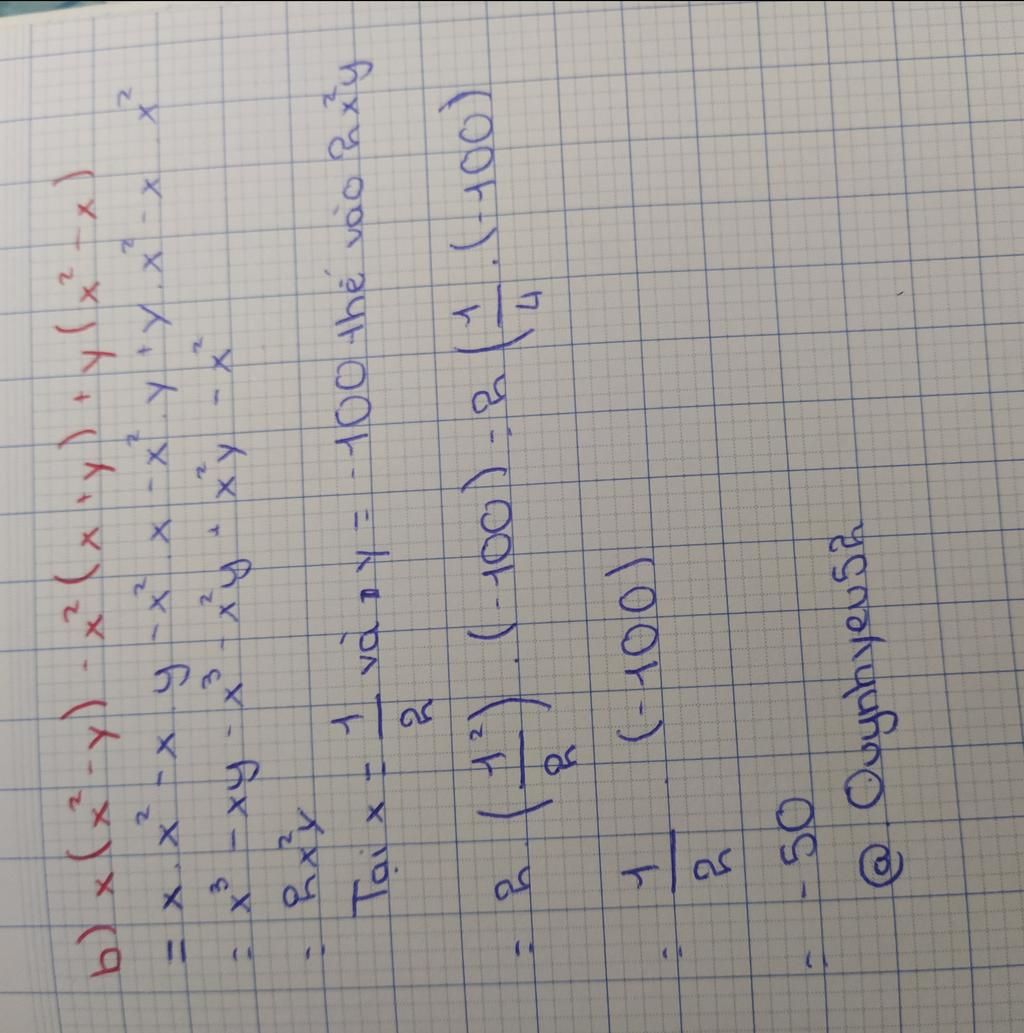 b) x(x² - y) - x²(x + y) + y(x² - x)
= x.x² - x.y - x².x - x².y + y.x² - x.x²
= x³ - xy - x³ - x²y + x²y - x²
= 2x²y
Tại x = 1/2 và y = -100 thế vào 2x²y
= 2.(1²/2).(-100) = 2(1/4.(-100)
= 1/2.(-100)
= -50
@ Quynhyeu52